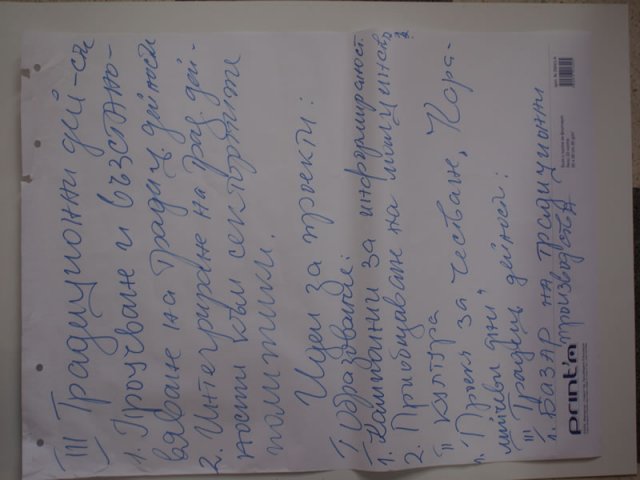 III Традиционни дей-сти
1. Проучване и възстано-
вяване на традиц. дейности
2. Интегриране на трад. дей-
ности към секторните
политики.
Идеи за проекти:
I Образование:
1. Кампании за информираност
2. Приобщаване на
II Култура
1. Проект за честване „Кара-
дни"
III Традиц. дейности:
1. Базар на традиционни
производства
Print'n